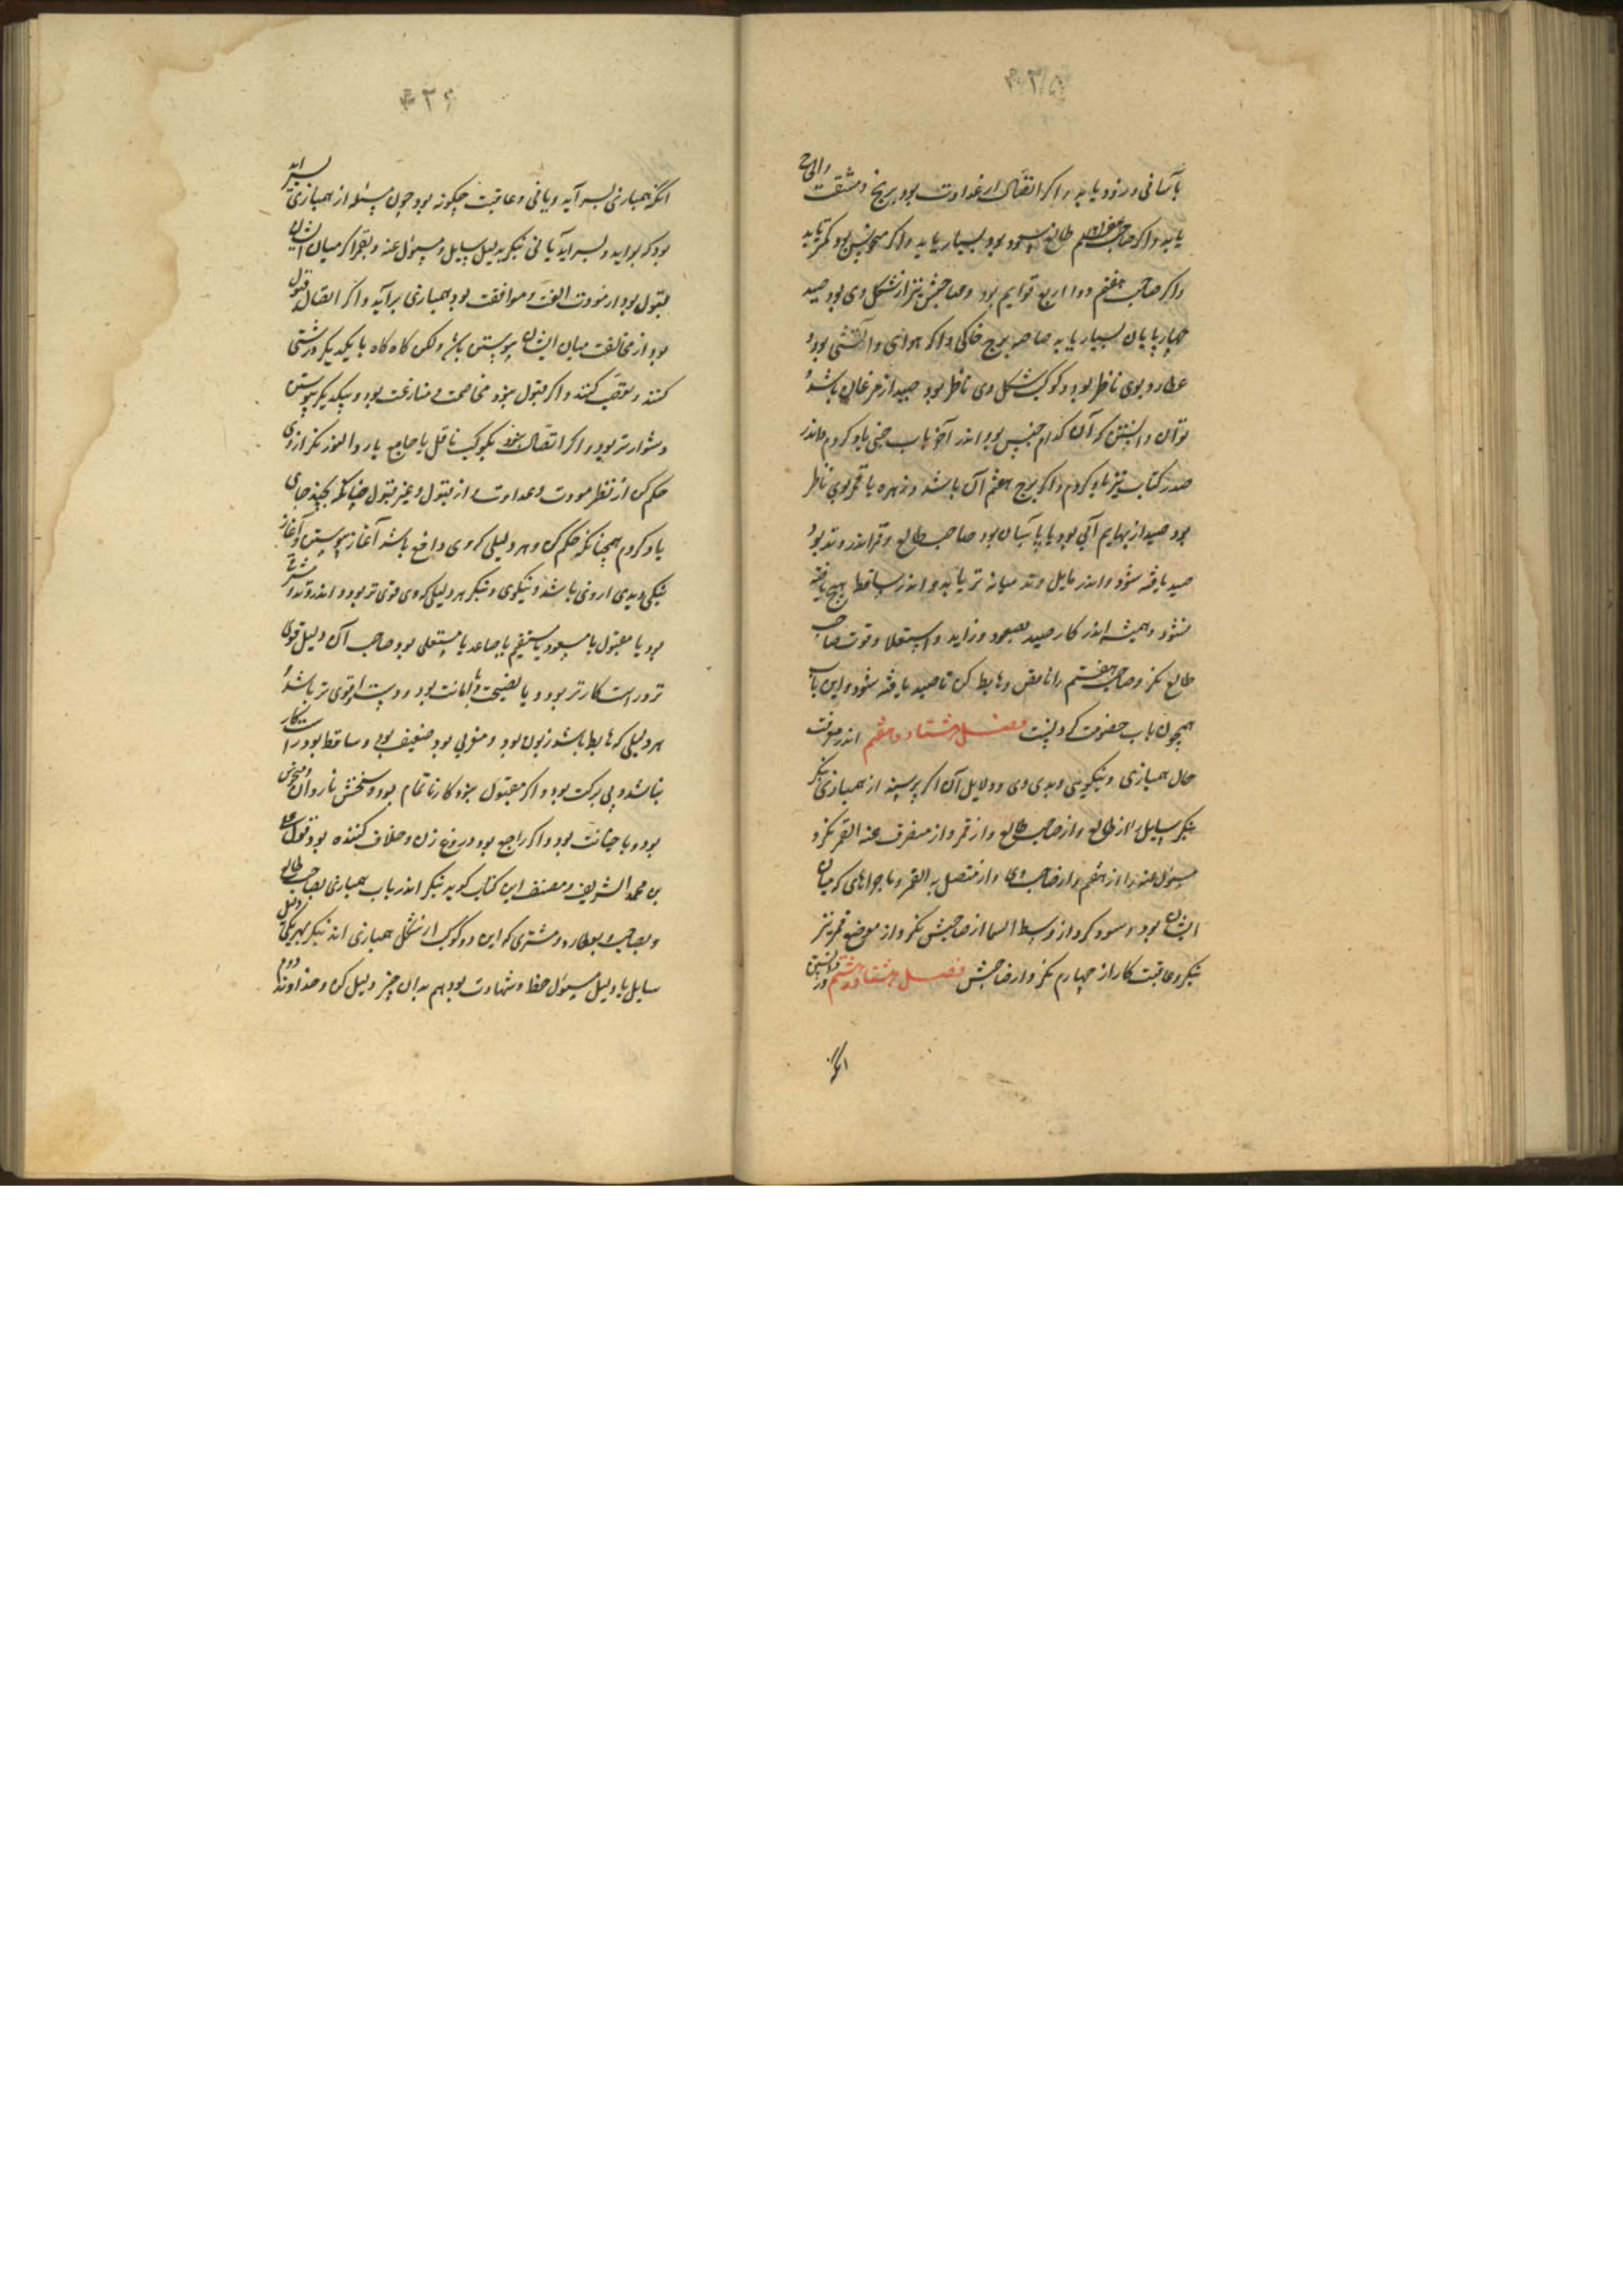 ۴۳۵
بآسانی و زود یابد و اگر اتصال از عداوت بود برنج و مشقت
یابد و اگر صاحب طالع مسعود بود بسیار یابد و اگر منحوس بود کمتر یابد
و اگر صاحب هفتم ذوا اربع قوایم بود و صاحبش نیز از شکل وی بود صید
چهارپایان بسیار یابد خاصه برج خاکی و اگر هوای و آتشی بود و
عطارد بوی ناظر بود و کوکب شکل وی ناظر بود صید از مرغان باشد و
توان دانستن که آن کدام جنس بود اندر آخر باب خبی یاد کردم و اندر
صدر کتاب نیز یاد کردم و اگر برج هفتم آن باشد و زهره یا قمر بوی ناظر
بود صید از بهایم آبی بود صاحب طالع و قمر اندر وتد بود
صید یافته شود و اندر مایل وتد میانه تر یابد و اندر ساقط هیچ یافته
نشود و همیشه اندر کار صید بصعود و زاید و استعلا و قوت صاحب
طالع نگر و صاحب هفتم را ناقص و هابط کن تا صید یافته شود و این باب
همچون باب خصومت فصل هشتاد و هفتم اندر معرفت
حال همبازی و نیکویی و بدی وی و دلایل آن اگر پرسند از همبازی نگر
بنگر سایل را از طالع و از صاحب طالع و از قمر و از منصرف عنه القمر نگر و
مسؤل عنه را از هفتم و از صاحب وی و از متصل به القمر و ماجراهای که میان
ایشان بود و از وسط السما از صاحبش نگر و از موضع قمر نیز
بنگر و عاقبت کار از چهارم نگر و از صاحبش فصل هشتاد و هشتم در دانستن
آنکه
۴۳۶
آنکه همبازی بسر آید یا نی و عاقبت چگونه بود چون پرسند از همبازی بسر آید
بود که برآید و بسر آید یا نی بنگر بدلیل سایل و مسؤل عنه و بقمر اگر میان ایشان
قبول بود از مودت الفت و موافقت بود همبازی برآید و اگر اتصال قبول
بود از مخالفت میان ایشان پیوستن باشد ولکن گاه گاه با یکدیگر درشتی
کنند و تعصب کنند و اگر قبول نبود مخاصمت و منازعت بود و بیکدیگر پیوستن
دشوارتر بود و اگر اتصال نبود بکوکب ناقل یا جامع یا رد النور نگر از وی
حکم کن از نظر مودت و عداوت و از قبول و غیر قبول چنانکه بچند جای
یاد کردم همچنانکه حکم کن و هر دلیلی که وی دافع باشد آغاز پیوستن و آغاز
نیکی و بدی از وی باشد و نیکوی و بنگر هر دلیلی که وی قوی تر بود و اندر وتد و شرقی
بود یا مقبول یا مسعود یا مستقیم یا صاعد یا مستعلی بود صاحب آن دلیل قوی
تر و راست کارتر بود و با نصیحت و با امانت بود و دست او قوی تر باشد و
هر دلیلی که هابط باشد زبون بود و مغربی بود ضعیف بود و ساقط بود راست کار
نباشد و بی برکت بود و اگر مقبول نبود کار ناتمام بود و سخنش ناروان و منحوس
بود و با خیانت بود و اگر راجع بود دروغ زن و خلاف کننده بود قول علی
بن محمد الشریف و مصنف این کتاب گوید بنگر اندر باب همبازی بصاحب طالع
و بصاحب و بعطارد و مشتری که این دو کوکب از شکل همبازی اند بنگر بهر یکی دلیل
سایل یا دلیل مسؤل حظ و شهادت بود هم بدان چیز دلیل کن و خداوند دوم